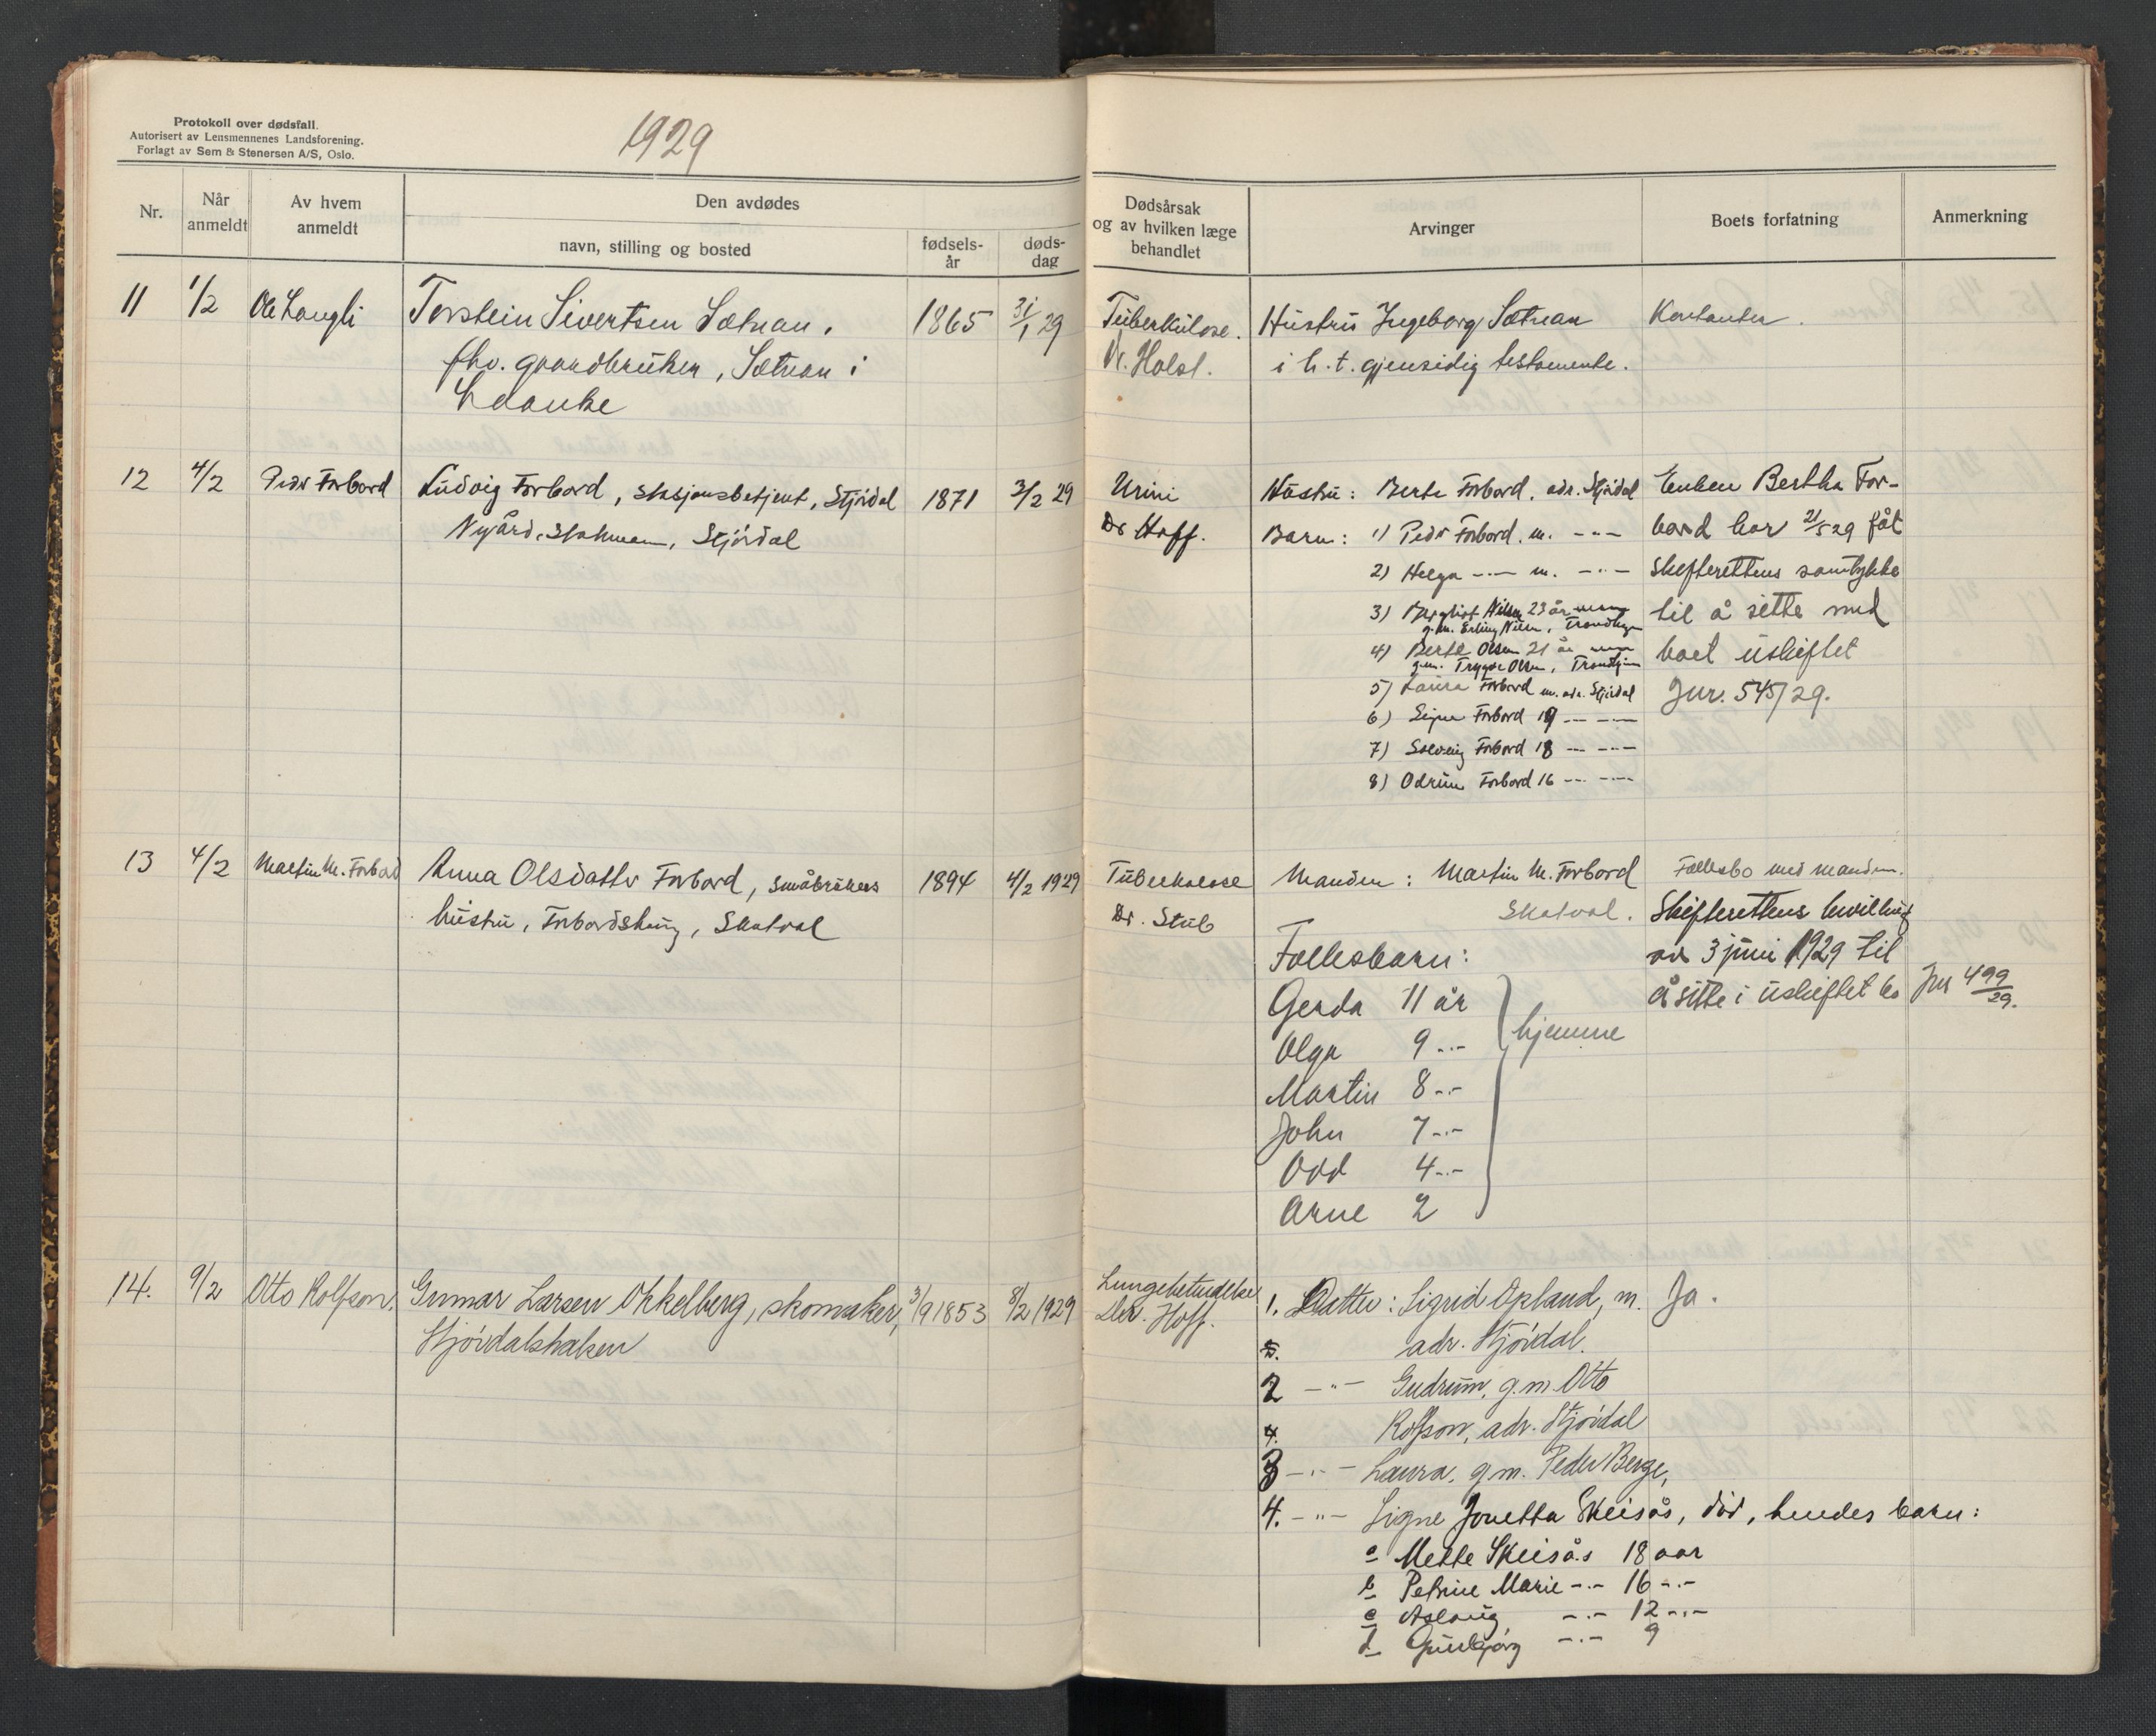 Protokoll over dødsfall.
Autorisert av Lensmennenes Landsforening.
Forlagt av Sem & Stenersen A/S, Oslo.
1929
Nr.
Når anmeldt
Av hvem anmeldt
Den avdødes
navn, stilling og bosted
fødsels-år
døds-dag
Dødsårsak og av hvilken læge behandlet
Arvinger
Boets forfatning
Anmerkning
11 1/2 Ole Langli Torstein Sivertsen Sætnan, 1865 31/1 29 Tuberkulose. Hustru Ingeborg Sætnan Kontanter.
fhv. gaardbruker, Sætnan i Dr. Holst. i h. t. gjensidig testamente.
Leanke
12 4/2 Peder Forbord Ludvig Forbord, stasjonsbetjent, Stjørdal 1871 3/2 29 Urini Hustru: Berta Forbord, adr. Stjørdal Enken Bertha For-
Nygård, Stjørdal Dr Hoff. Barn: 1) Peder Forbord. m. -"- bord har 21/5 29 fåt
2) Helga -"- m. -"- Skifterettens samtykke
3) Bergliot Nilsen 23 år til å sitte med
g.m. Erling Nilsen, Trondhjem
4) Berta Olsen 21 år boet uskiftet
g.m. Trygve Olsen, Trondhjem
5) Laura Forbord m. adr. Stjørdal Jnr. 545/29.
6) Signe Forbord 19 -"- -"-
7) Solveig Forbord 18 -"- -"-
8) Odrun Forbord 16 -"- -"-
13 4/2 Martin M. Forbord Anna Olsdatter Forbord, småbrukers 1894 4/2 1929 Tuberkulose Manden: Martin M. Forbord Fællesbo med manden.
hustru, Forbordshaug, Skatval Dr. Stub Skatval. Skifterettens bevilling
Fællesbarn: av 3 juni 1929 til
Gerda 11 år å sitte i uskiftet bo Jnr 499/29.
Olga 9 -"- hjemme
Martin 8 -"-
John 7 -"-
Odd 4 -"-
Arne 2
14. 9/2 Otto Rolfson. Gunnar Larsen Okkelberg, skomaker, 3/9 1853 8/2 1929 Lungebetændelse 1. Datter: Sigrid Opland, m. Ja.
Stjørdalshalsen Dr. Hoff. adr. Stjørdal.
2 -"- Gudrun, g.m. Otto
Rolfson, adr. Stjørdal
3 -"- Laura, g.m. Peder Berge,
4. -"- Signe Jonetta Skeisås, død, hendes barn:
a Mette Skeisås 18 aar
b Petrine Marie -"- 16 -"-
c Aslaug -"- 12 -"-
d Gunbjørg -"- 9